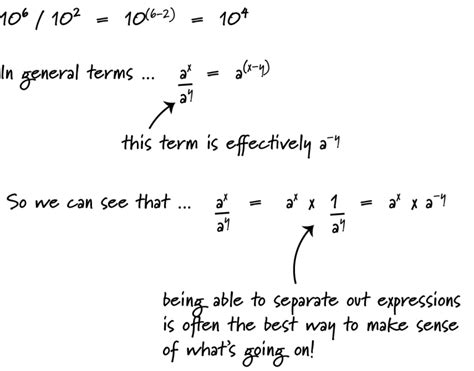 10⁶ / 10² = 10⁽⁶⁻²⁾ = 10⁴
In general terms ... aˣ/aʸ = a⁽ˣ⁻ʸ⁾
this term is effectively a⁻ʸ
So we can see that ... aˣ/aʸ = aˣ x 1/aʸ = aˣ x a⁻ʸ
being able to separate out expressions
is often the best way to make sense
of what's going on!